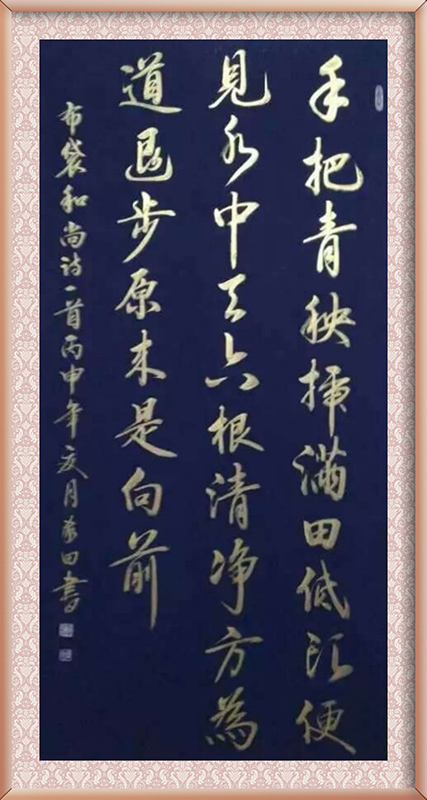 手把青秧插滿田低头便
見水中天六根清净方為
道退步原来是向前
布袋和尚诗一首丙申年夏月田書